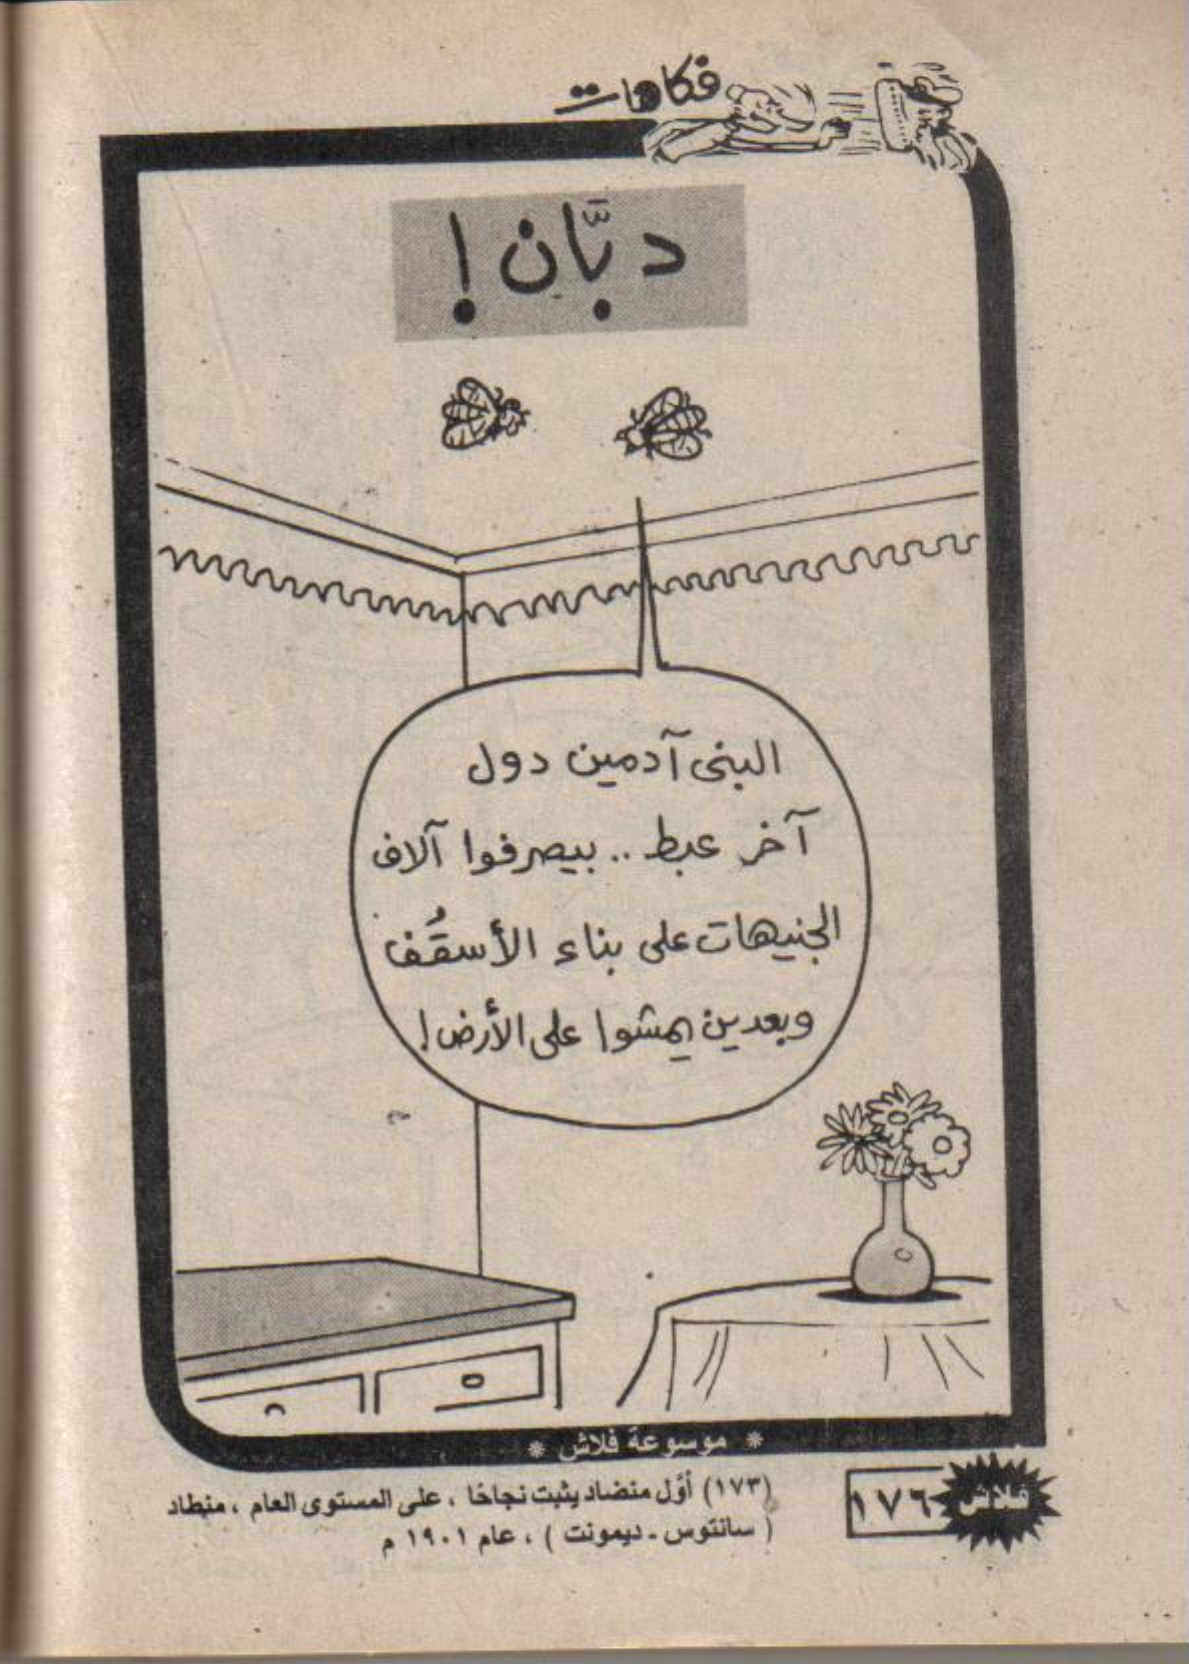 فكاهات
دبَّان !
البنى آدمين دول
آخر عبط .. بيصرفوا آلاف
الجنيهات على بناء الأسقُف
وبعدين يمشوا على الأرض !
* موسوعة فلاش *
(١٧٣) أوَّل منضاد يثبت نجاحًا ، على المستوى العام ، منطاد
( سانتوس - ديمونت ) ، عام ١٩٠١ م
فلاش ١٧٦